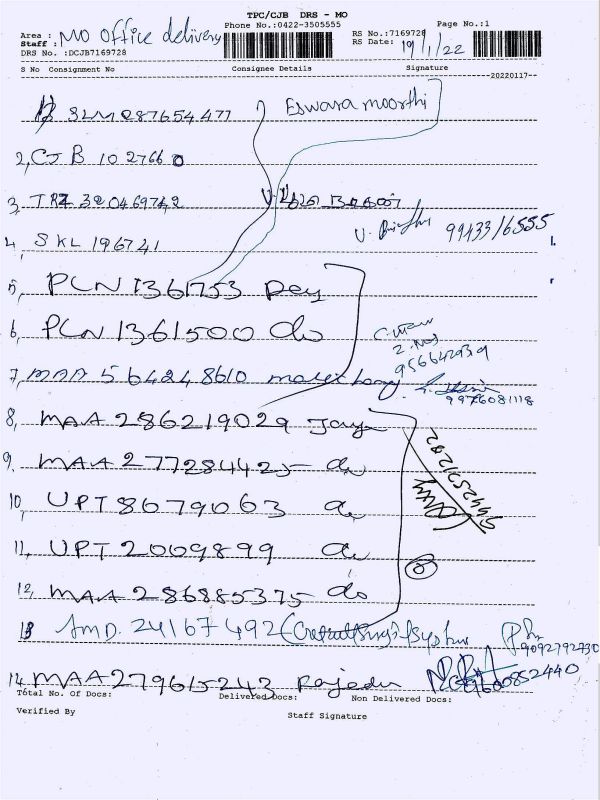 TPC/CJB DRS - MO
Phone No.:0422-3505555 Page No.:1
Area : MO Office delivery RS No.:7169728
Staff : RS Date: 19/1/22
DRS No. :DCJB7169728
S No Consignment No Consignee Details Signature
--20220117--
SLM 287654477 Eswara moorthi
2, CJB 1027660
3, TRZ 320469742
U. 9943316555
4, SKL 196741
5, PLN 1361753 Dey
6, PLN 1361500 do
2. Nos
956642939
7, MAA 564248610
9976081118
8, MAA 286219029 Jaya
9, MAA 277284425 do
10, UPT 8679063 do
11, UPT 2009899 do
8
12, MAA 286885375 do
13 AMD. 24167492
9092792930
14 MAA279615243 Rajedu
9600852440
Total No. Of Docs: Delivered Docs: Non Delivered Docs:
Verified By Staff Signature